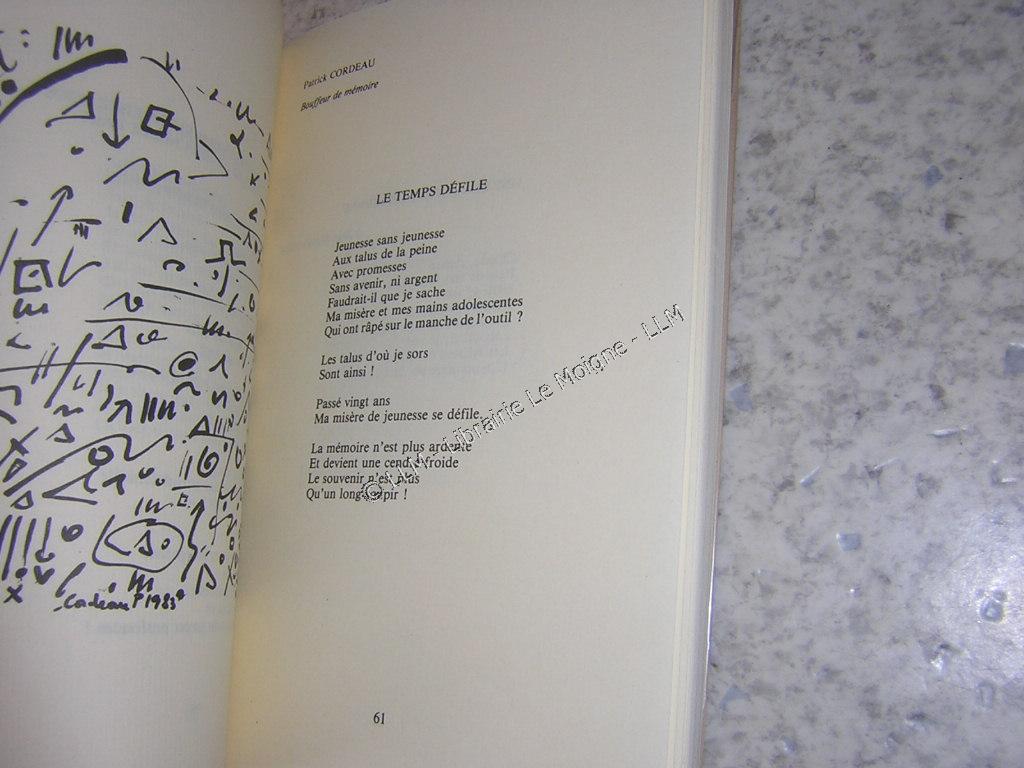 Cordeau P 1983
Patrick CORDEAU
Bouffeur de mémoire
LE TEMPS DÉFILE
Jeunesse sans jeunesse
Aux talus de la peine
Avec promesses
Sans avenir, ni argent
Faudrait-il que je sache
Ma misère et mes mains adolescentes
Qui ont râpé sur le manche de l'outil ?
Les talus d'où je sors
Sont ainsi !
Passé vingt ans
Ma misère de jeunesse se défile.
La mémoire n'est plus ardente
Et devient une cendre froide
Le souvenir n'est plus
Qu'un long soupir !
61
© LLM - Librairie Le Moigne - LLM